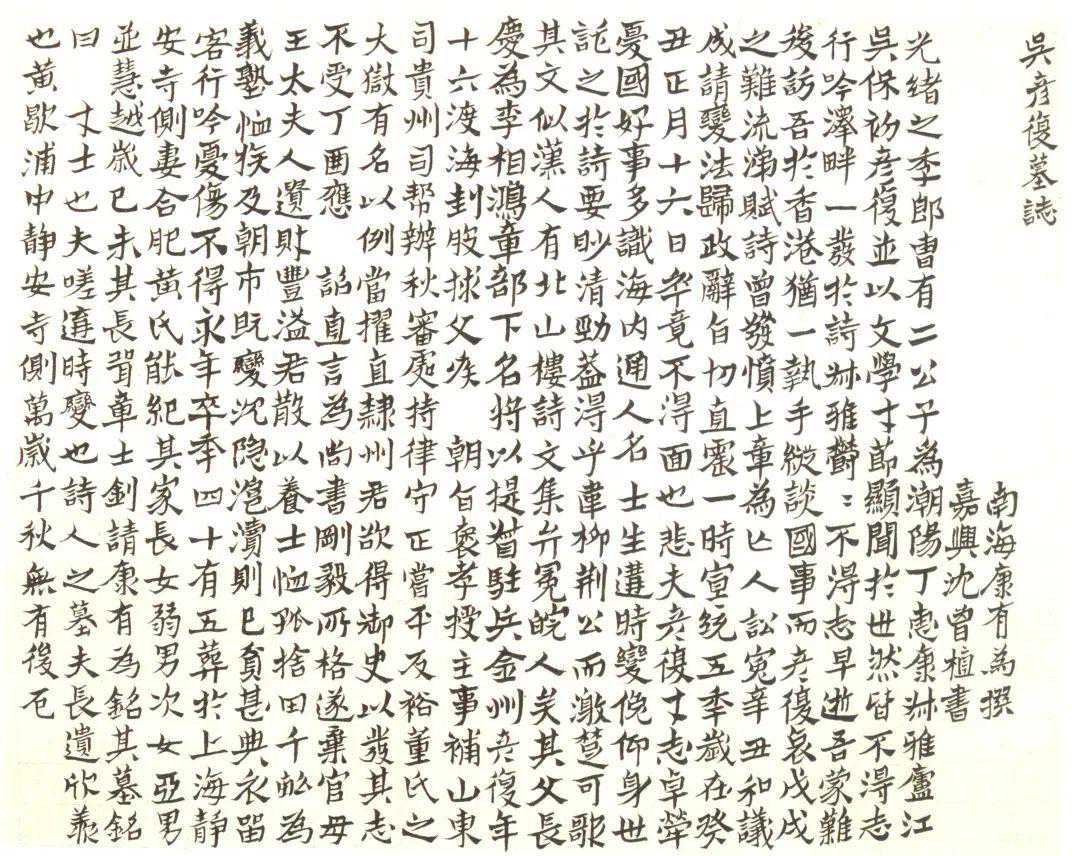 吳彥復墓誌
南海康有為撰
嘉興沈曾植書
光緒之季郎曹有二公子為潮陽丁惠康叔雅廬江
吳保初彥復並以文學才節顯聞於世然皆不得志
行吟澤畔一發於詩叔雅鬱〻不得志早逝吾蒙難
後訪吾於香港猶一執手縱談國事而彥復哀戊戌
之難流涕賦詩曾發憤上章為亡人訟冤辛丑和議
成請變法歸政辭旨切直震一時宣統五季歲在癸
丑正月十六日卒竟不得面也悲夫彥復才志卓犖
憂國好事多識海內通人名士生遘時變俛仰身世
託之於詩要眇清勁蓋得乎韋柳荊公而澈楚可歌
其文似漢人有北山樓詩文集弁冕皖人矣其父長
慶為李相鴻章部下名將以提督駐兵金州彥復年
十六渡海刲股捄父疾　朝旨褒孝授主事補山東
司貴州司帮辦秋審處持律守正嘗平反裕董氏之
大獄有名以例當擢直隸州君欲得御史以發其志
不受丁酉應　詔直言為尚書剛毅所格遂棄官毋
王太夫人遺財豐溢君散以養士恤孤捨田千畝為
義塾恤族及朝市既變沈隐滬瀆則已貧甚典衣留
客行吟憂傷不得永年卒季四十有五葬於上海靜
安寺側妻合肥黃氏能紀其家長女弱男次女亞男
並慧越歲己未其長壻章士釗請康有為銘其墓銘
曰　才士也夫嗟遘時變也詩人之墓夫長遺欣羨
也黃歇浦中靜安寺側萬歲千秋無有後厄